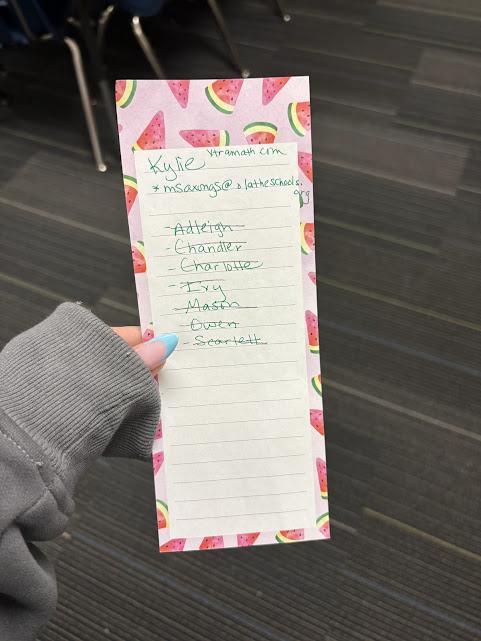 Kylie xtramath.com
* msaxongs@olatheschools.
org
- Adleigh
- Chandler
- Charlotte
- Ivy
- Mason
- Owen
- Scarlett